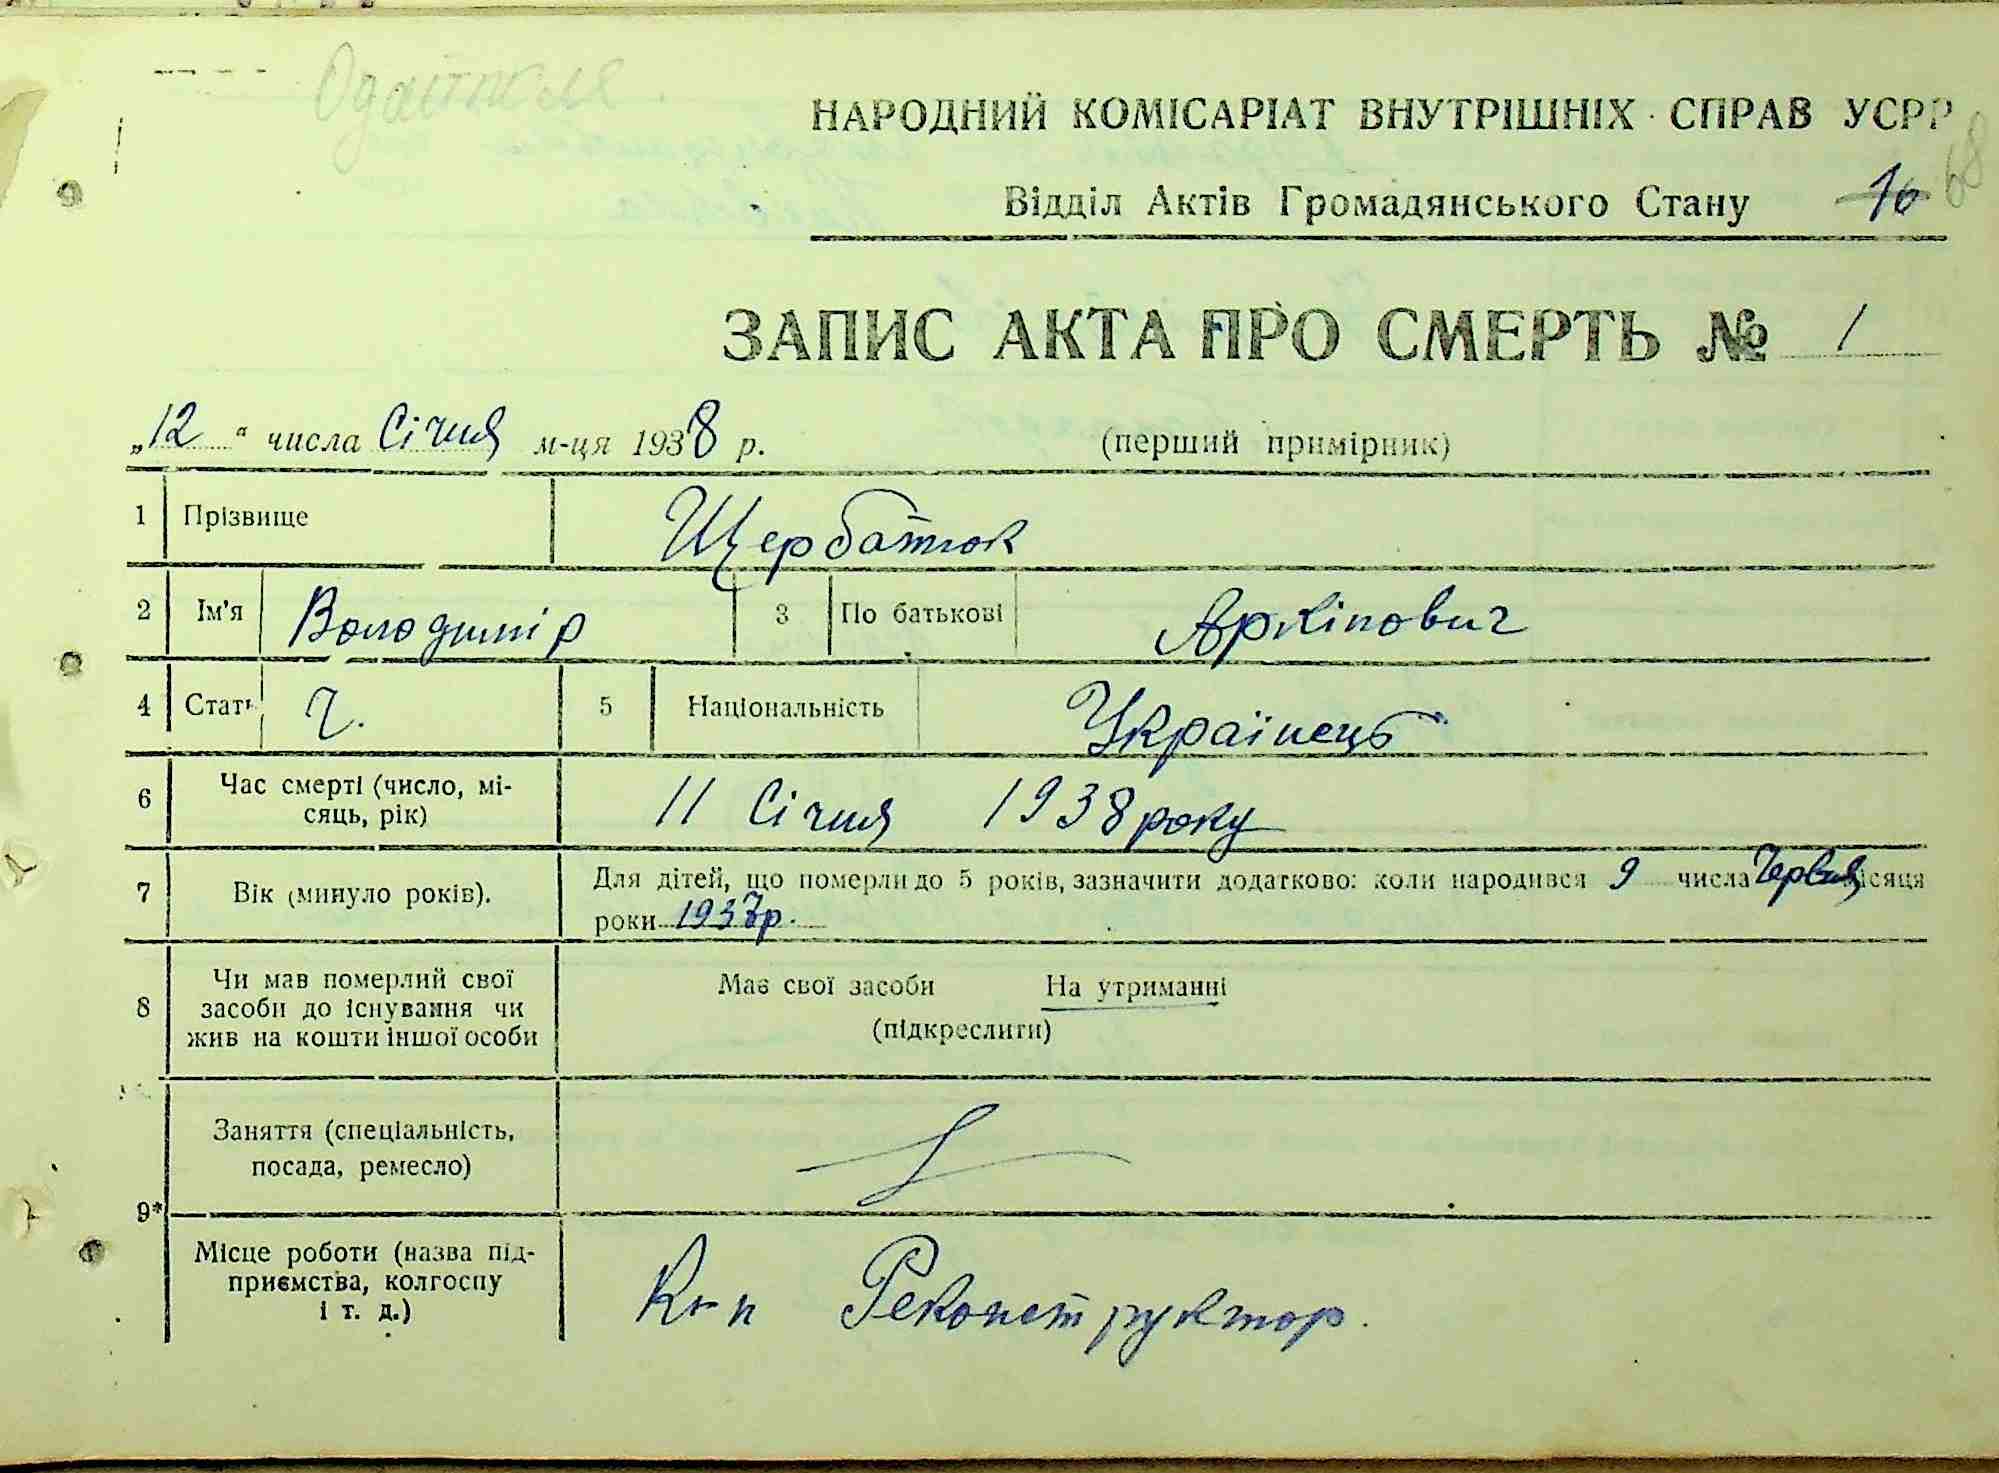 НАРОДНИЙ КОМІСАРІАТ ВНУТРІШНІХ СПРАВ УСРР
68
Відділ Актів Громадянського Стану 16
ЗАПИС АКТА ПРО СМЕРТЬ № 1
„12“ числа Січня м-ця 1938 р. (перший примірник)
1 Прізвище Щербатюк
2 Ім'я Володимір 3 По батькові Архіпович
4 Стать ч. 5 Національність Українець
6 Час смерті (число, мі-
сяць, рік) 11 Січня 1938 року
7 Вік (минуло років). Для дітей, що померли до 5 років, зазначити додатково: коли народився 9 числа Червня місяця
роки 1937р.
8 Чи мав померлий свої
засоби до існування чи
жив на кошти іншої особи
Має свої засоби На утриманні
(підкреслити)
9* Заняття (спеціальність,
посада, ремесло)
Місце роботи (назва під-
приємства, колгоспу
і т. д.)
К-п Реконструктор.